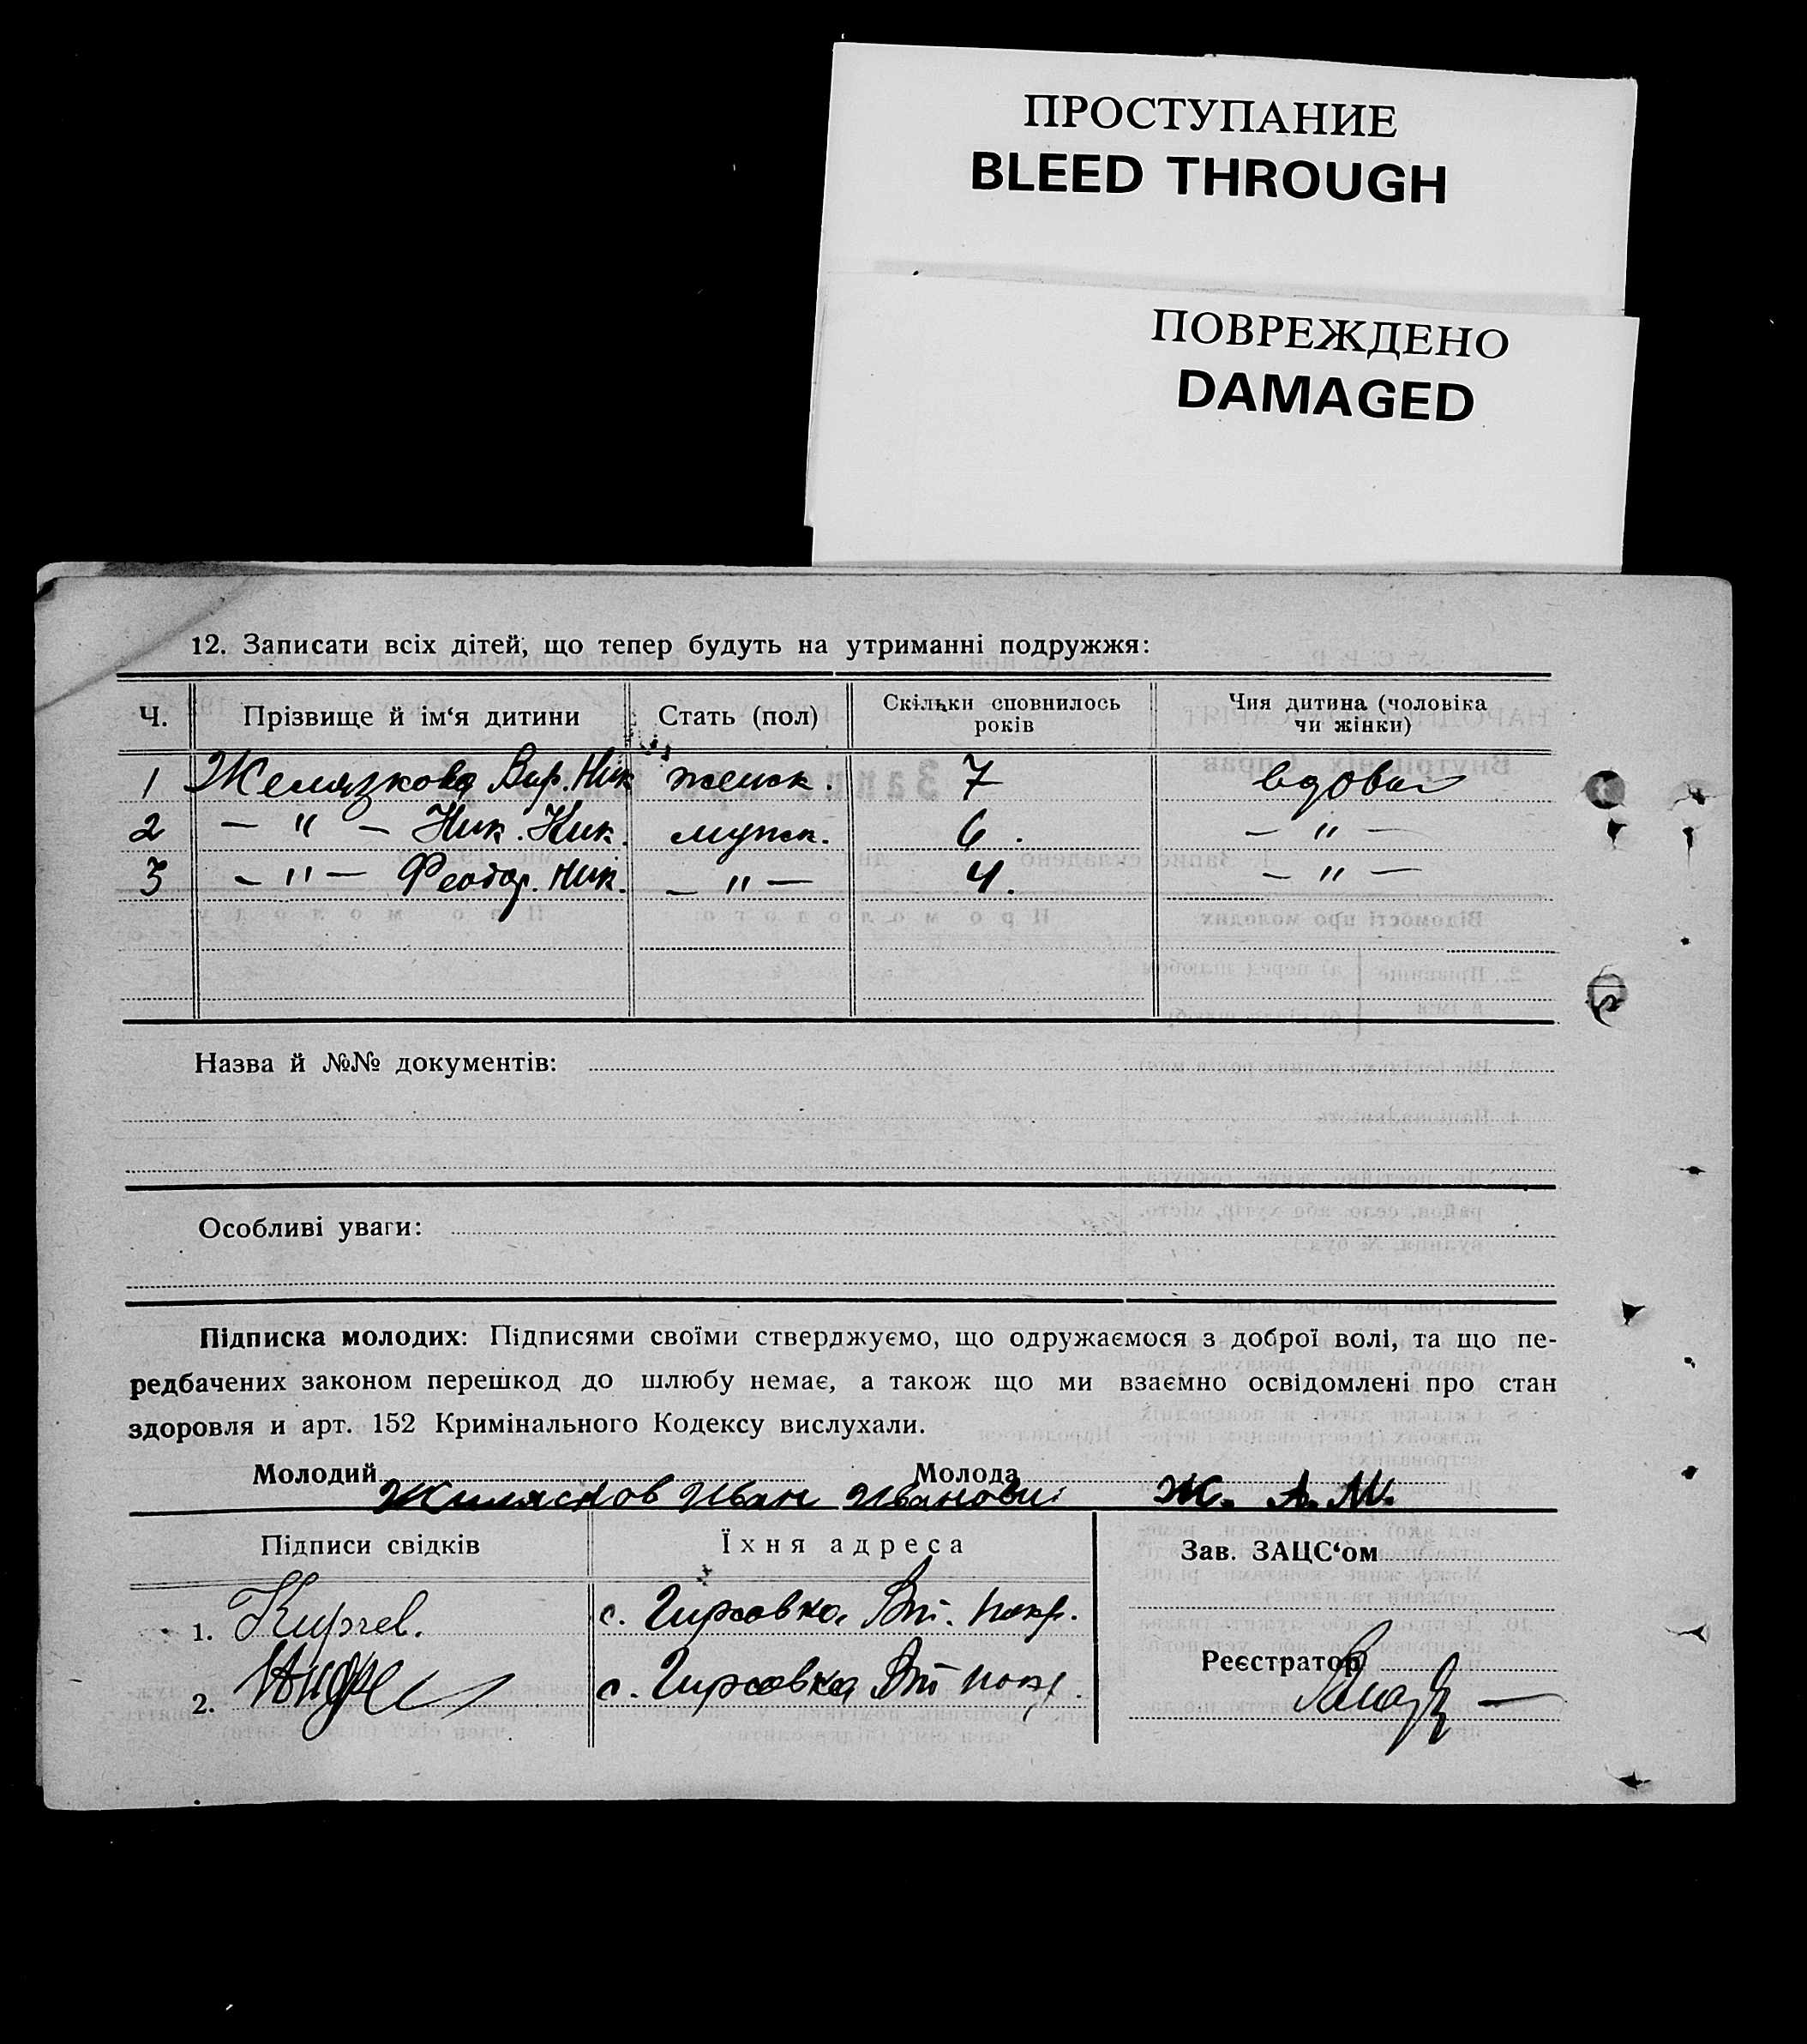 ПРОСТУПАНИЕ
BLEED THROUGH
ПОВРЕЖДЕНО
DAMAGED
12. Записати всіх дітей, що тепер будуть на утриманні подружжя:
Ч. Прізвище й ім‘я дитини Стать (пол) Скільки сповнилось років Чия дитина (чоловіка чи жінки)
1 Желязкова Вар. Ник женск. 7 вдовы
2 — " — Ник. Ник. мужск. 6. — " —
3 — " — Феодор. Ник. — " — 4. — " —
Назва й №№ документів:
Особливі уваги:
Підписка молодих: Підписями своїми стверджуємо, що одружаємося з доброї волі, та що пе-
редбачених законом перешкод до шлюбу немає, а також що ми взаємно освідомлені про стан
здоровля и арт. 152 Кримінального Кодексу вислухали.
Молодий Молода
Жилясков Иван Иванови Ж. А. М.
Підписи свідків Їхня адреса Зав. ЗАЦС‘ом
1. с. Гирсовка
Реєстратор
2. с. Гирсовка